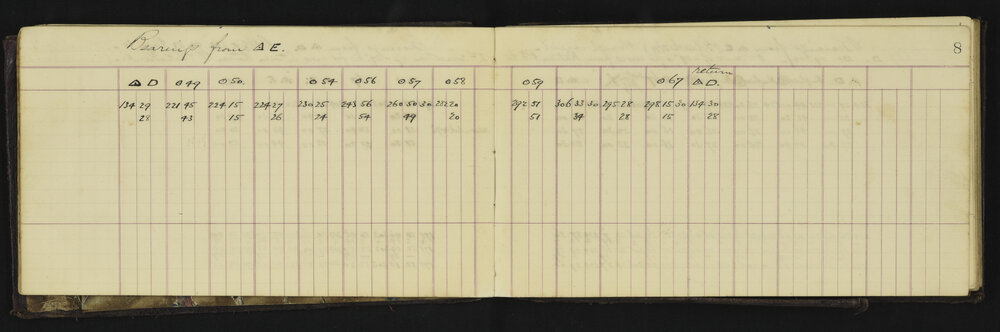 Bearings from △ E.
8
return
△ D ⊙ 49 ⊙ 50. ⊙ 54 ⊙ 56 ⊙ 57 ⊙ 58 ⊙ 59 ⊙ 67 △ D.
134 29 221 45 224 15 224 27 230 25 243 56 260 50 30 252 20 292 51 306 33 30 295 28 298 15 30 134 30
28 43 15 26 24 54 49 20 51 34 28 15 28